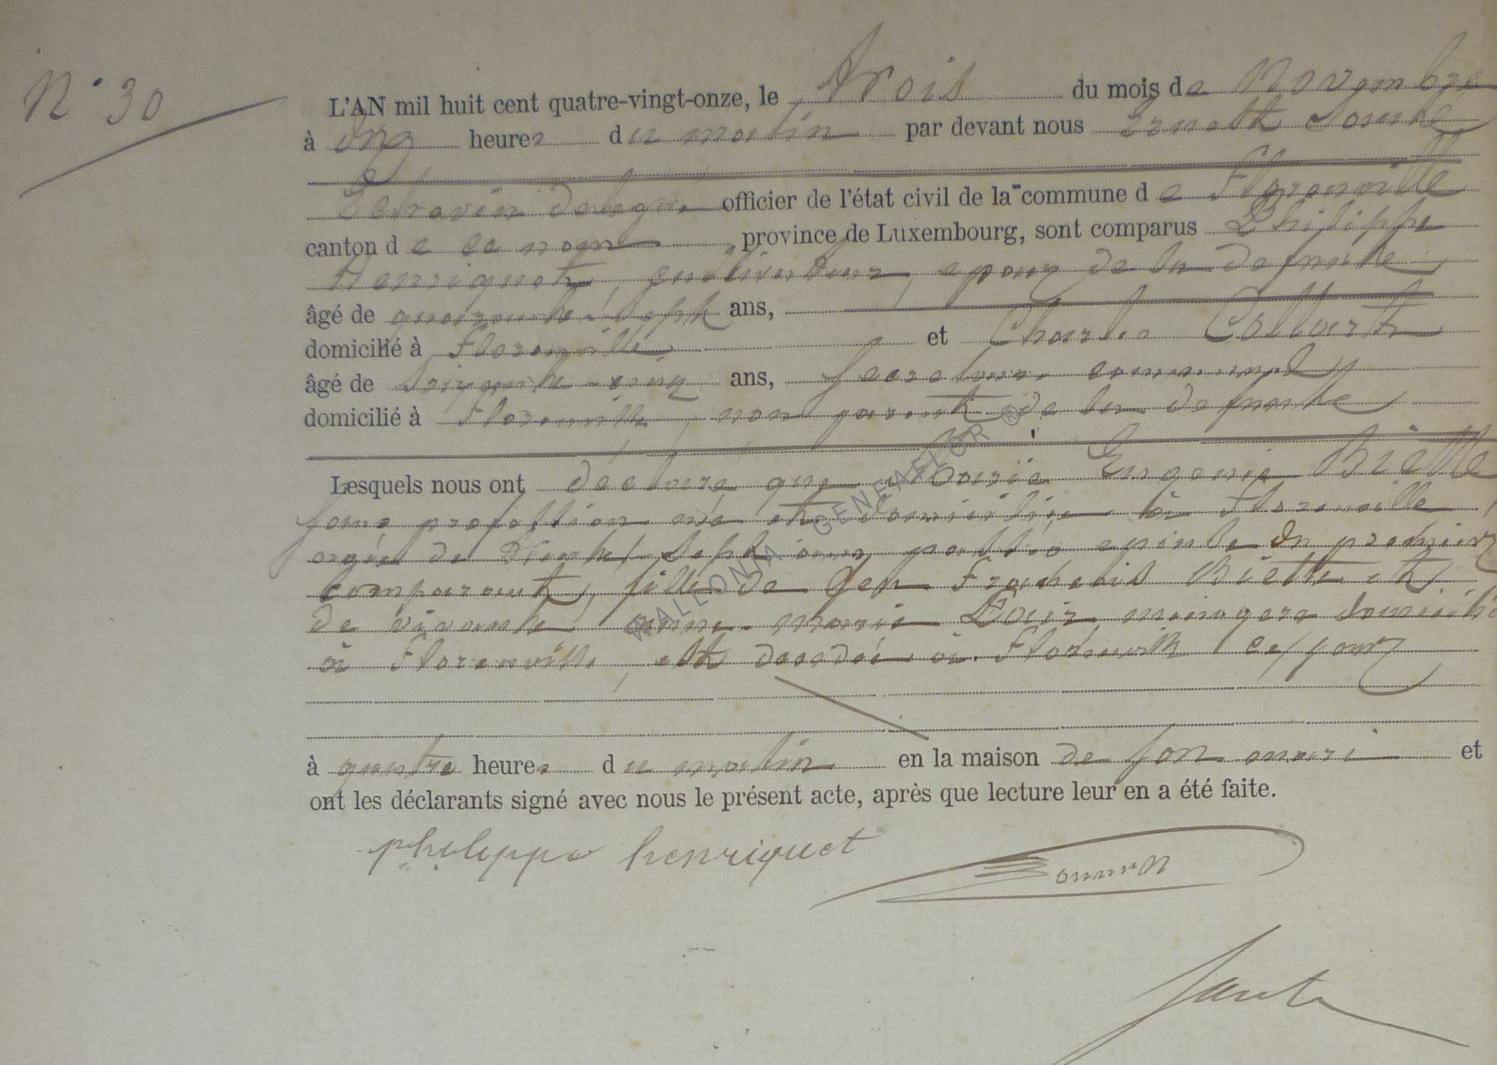 N° 30
L'AN mil huit cent quatre-vingt-onze, le trois du mois de Novembre
à onze heures du matin par devant nous Ernest
Echevin délégué officier de l'état civil de la commune de Florenville
canton de ce nom province de Luxembourg, sont comparus Philippe
Henriquet, cultivateur, epoux de la defunte
âgé de quarante-sept ans,
domicilié à Florenville et Charles Collart
âgé de soixante-cinq ans, secretaire communal
domicilié à Florenville, non parent de la defunte
Lesquels nous ont déclaré que Marie Eugenie Biette
sans profession née et domiciliée à Florenville,
agée de trente sept ans epouse du premier
comparant, fille de feu François Biette et
de vivante Anne-Marie menagere domicilié
à Florenville, est decedée à Florenville ce jour
à quatre heures du matin en la maison de son mari et
ont les déclarants signé avec nous le présent acte, après que lecture leur en a été faite.
philippe henriquet
WALLONIA GENEAFLOR ©